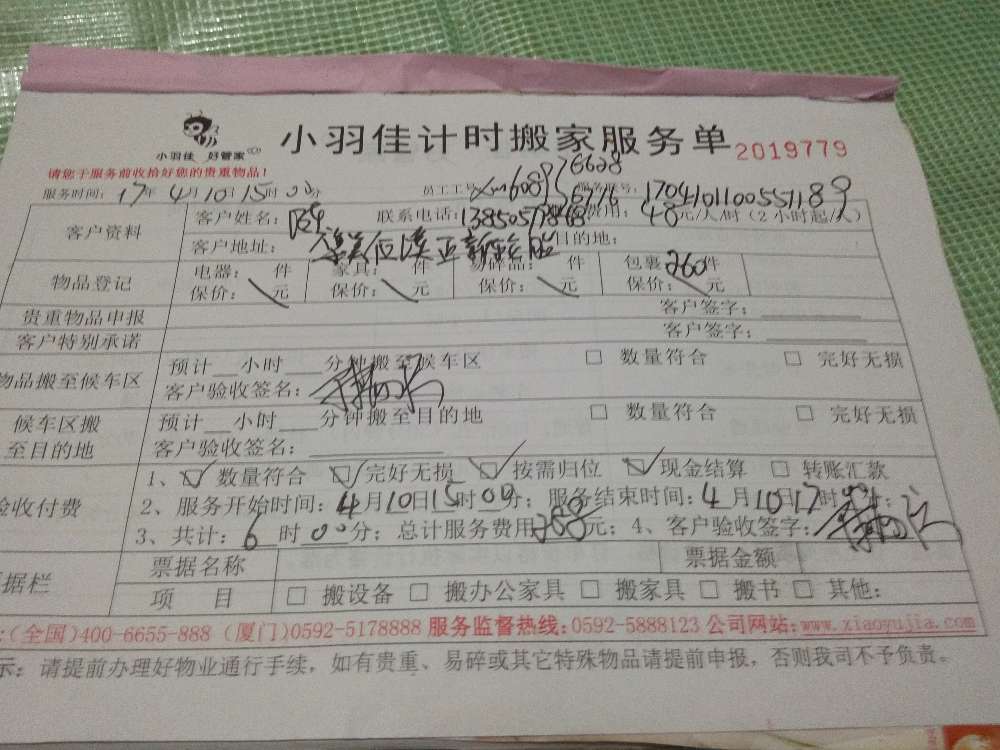 小羽佳 好管家
小羽佳计时搬家服务单 2019779
请您于服务前收拾好您的贵重物品!
服务时间: 17年 4月 10日 15时 00分 员工工号: 170410110055189
客户资料 客户姓名: 联系电话: 费用: 48元/人/时 (2小时起/人)
客户地址: 目的地:
物品登记 电器: 件 家具: 件 易碎品: 件 包裹 260件
保价: 元 保价: 元 保价: 元 保价: 元
贵重物品申报 客户签字:
客户特别承诺 客户签字:
物品搬至候车区 预计 小时 分钟搬至候车区 □ 数量符合 □ 完好无损
客户验收签名:
候车区搬至目的地 预计 小时 分钟搬至目的地 □ 数量符合 □ 完好无损
客户验收签名:
验收付费 1、☑ 数量符合 ☑ 完好无损 ☑ 按需归位 ☑ 现金结算 □ 转账汇款
2、服务开始时间: 4月10日15时00分; 服务结束时间: 4月10日17时
3、共计: 6时00分; 总计服务费用288元; 4、客户验收签字:
据栏 票据名称 票据金额
项 目 □ 搬设备 □ 搬办公家具 □ 搬家具 □ 搬书 □ 其他:
:(全国)400-6655-888 (厦门)0592-5178888 服务监督热线:0592-5888123 公司网站:www.xiaoyujia.com
示: 请提前办理好物业通行手续, 如有贵重、易碎或其它特殊物品请提前申报, 否则我司不予负责。